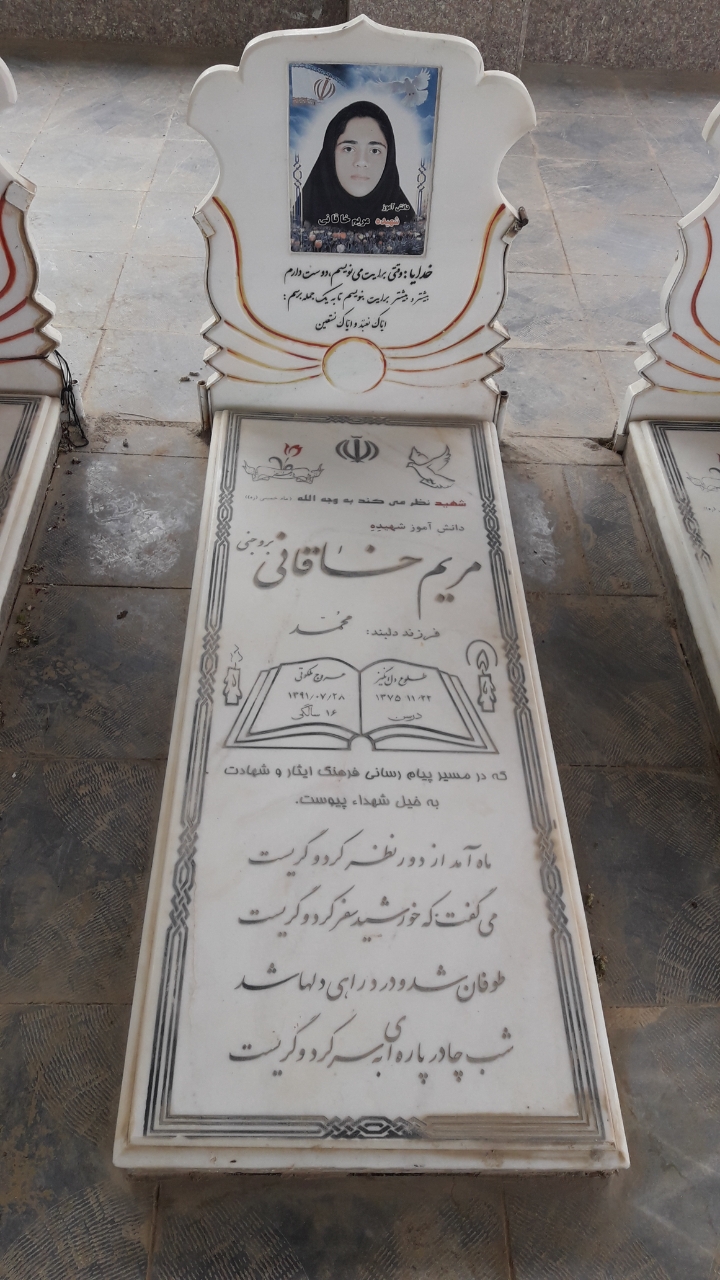 دانش آموز
شهیده مریم خاقانی
خدایا: وقتی برایت می نویسم، دوست دارم
بیشتر و بیشتر برایت بنویسم تا به یک جمله برسم:
ایاک نعبد و ایاک نستعین
شهید نظر می کند به وجه الله
دانش آموز شهیده
مریم خاقانی بروجنی
فرزند دلبند: محمّد
طلوع دل انگیز
۱۳۷۵/۱۱/۲۲
عروج ملکوتی
۱۳۹۱/۰۷/۲۸
۱۶ سالگی
که در مسیر پیام رسانی فرهنگ ایثار و شهادت
به خیل شهداء پیوست.
ماه آمد از دور نظر کرد و گریست
می گفت: که خورشید سفر کرد و گریست
طوفان شد و در دراهی دلها شد
شب چادر پاره ای به سر کرد و گریست